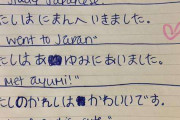 Japanese.
たしは にまんへ いきました。
went to Japan"
たしは あゆみに あいました。
met ayumi!"
たしの かれしは かわいいです。